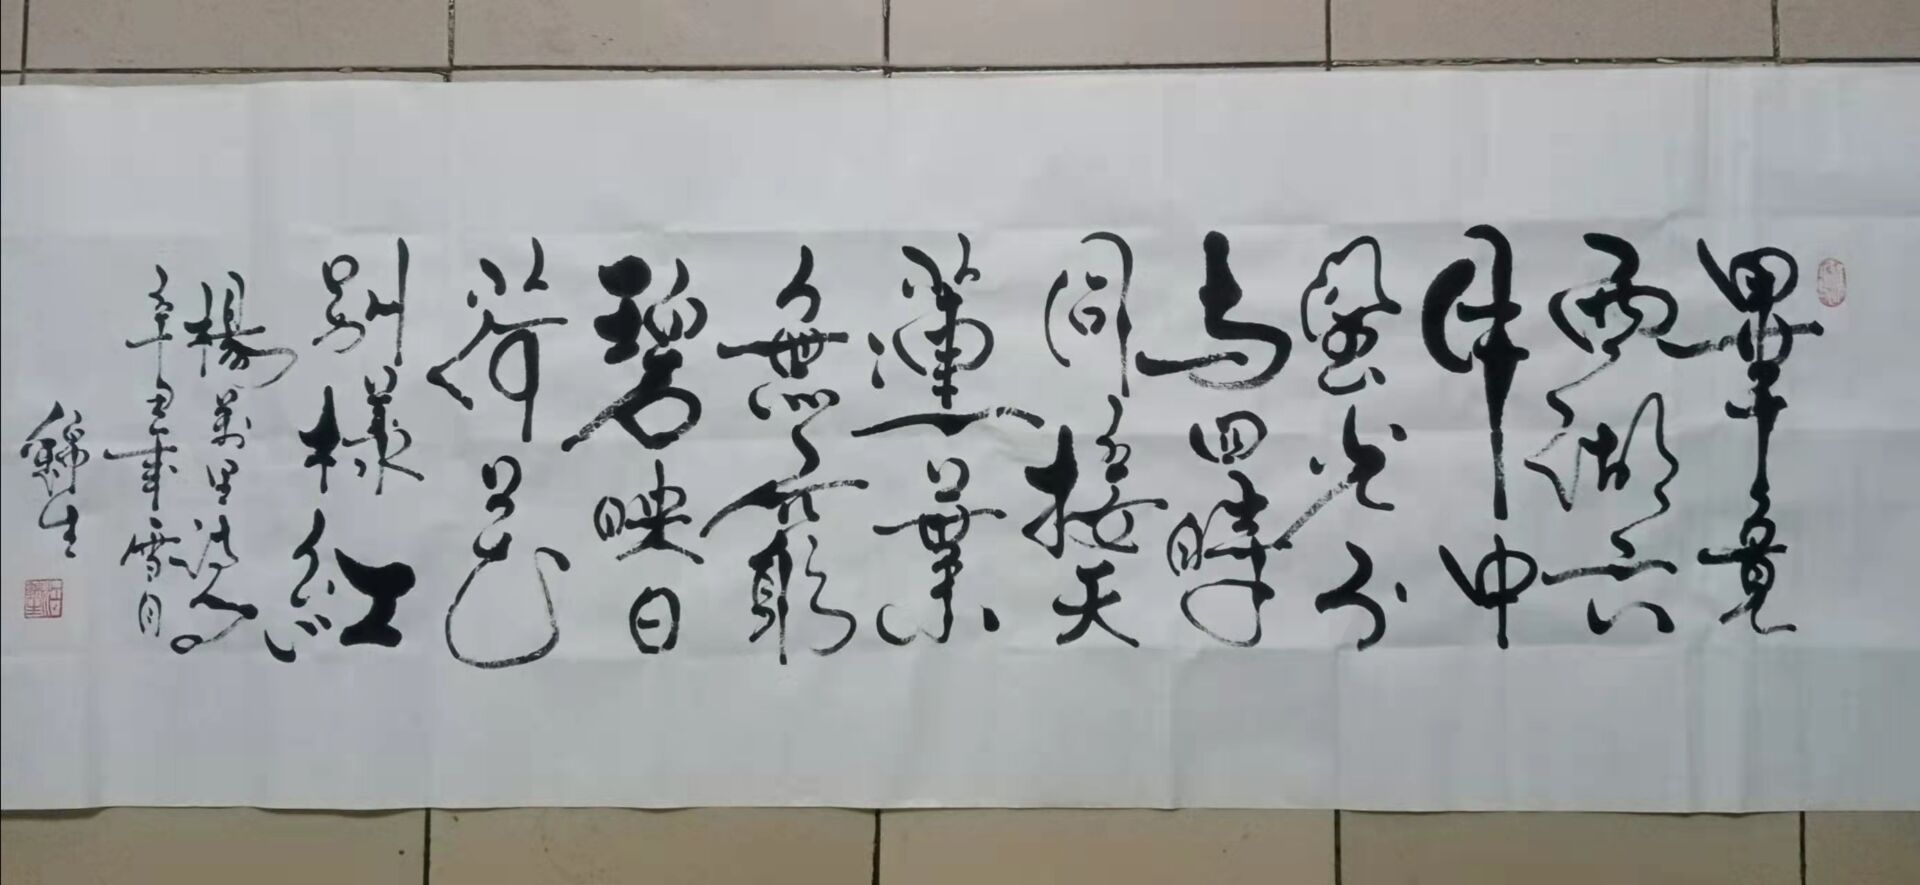 畢竟
西湖六
月中
風光不
与四時
同接天
蓮葉
無窮
碧映日
荷花
別樣紅
楊萬里詩
辛丑年雪月
錦生